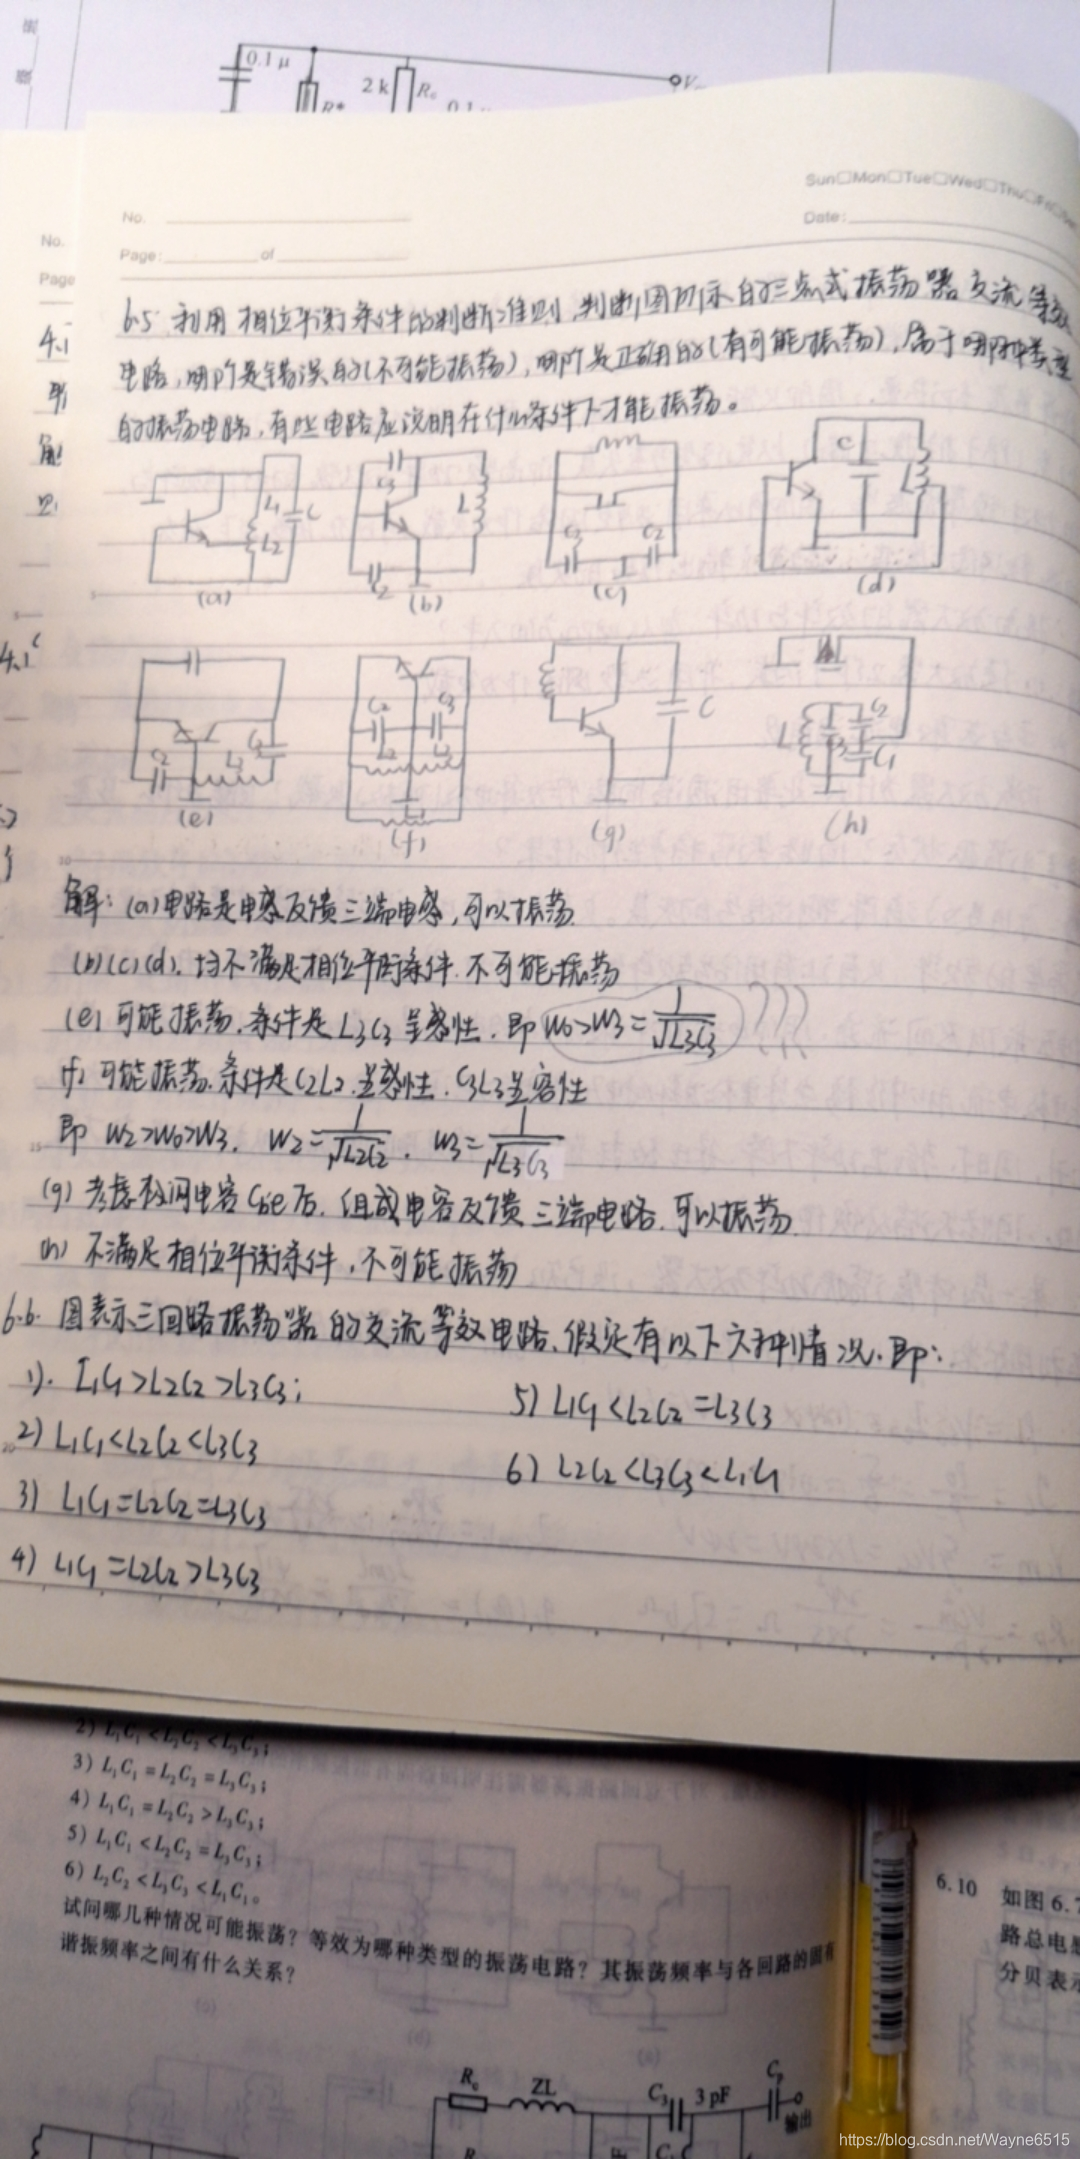 0.1 μ
2 k
Rc
No.
Page: of
Sun Mon Tue Wed Thu
Date:
No.
Page
6.5 利用相位平衡条件的判断准则,判断图所示的三点式振荡器交流等效
电路,哪个是错误的(不可能振荡),哪个是正确的(有可能振荡),属于哪种类型
的振荡电路,有些电路应说明在什么条件下才能振荡。
L1 C L2
(a)
C3 L C2
(b)
C2
(c)
C L
(d)
C2
(e)
C3 L2
(f)
C
(g)
L C2 C1
(h)
解: (a)电路是电感反馈三端电感,可以振荡
(b)(c)(d). 均不满足相位平衡条件.不可能振荡
(e) 可能振荡.条件是L3C3呈感性.即 W0>W3=1/√L3C3 ???
(f) 可能振荡.条件是C2L2.呈感性.C3L3呈容性
即 W2>W0>W3. W2=1/√L2C2 . W3=1/√L3C3
(g) 考虑极间电容Cbe后.组成电容反馈三端电路.可以振荡
(h) 不满足相位平衡条件,不可能振荡
6.6. 图表示三回路振荡器的交流等效电路.假定有以下六种情况.即:
1). L1C1>L2C2>L3C3;
5) L1C1<L2C2=L3C3
2) L1C1<L2C2<L3C3
6) L2C2<L3C3<L1C1
3) L1C1=L2C2=L3C3
4) L1C1=L2C2>L3C3
2) L1C1<L2C2<L3C3;
3) L1C1=L2C2=L3C3;
4) L1C1=L2C2>L3C3;
5) L1C1<L2C2=L3C3;
6) L2C2<L3C3<L1C1。
试问哪几种情况可能振荡?等效为哪种类型的振荡电路?其振荡频率与各回路的固有
谐振频率之间有什么关系?
6.10 如图 6.
路总电感
分贝表示
ZL
C3 3 pF
输出
https://blog.csdn.net/Wayne6515